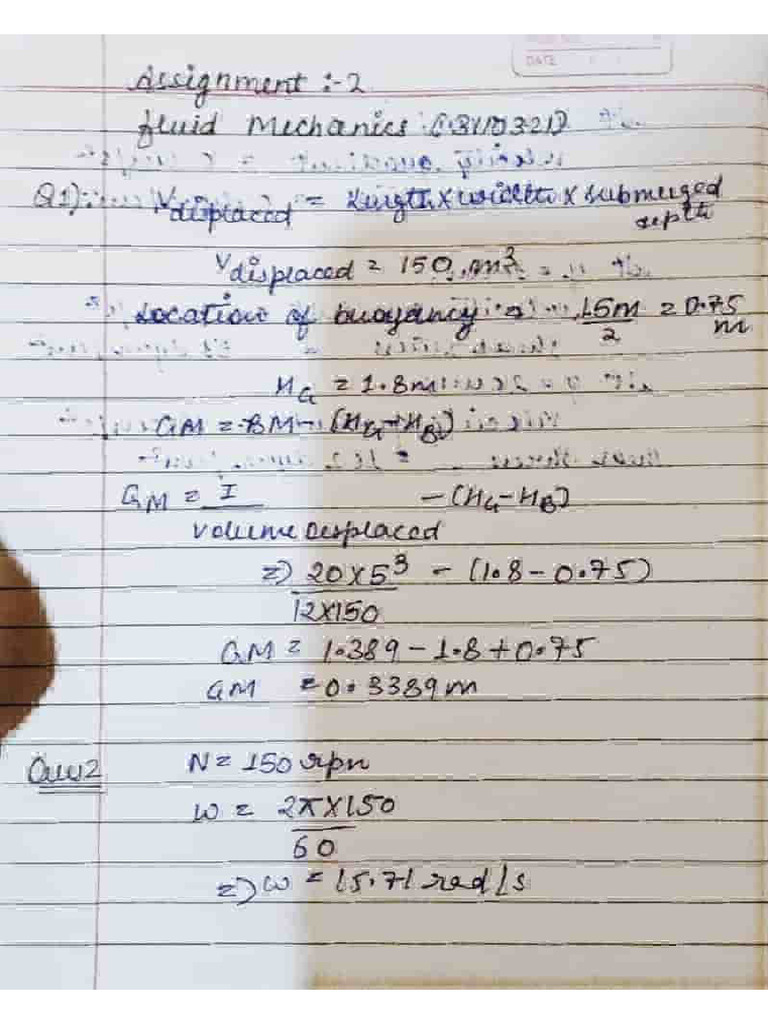 DATE
Assignment :- 2
fluid Mechanics (3110321)
Q1) Vdisplaced = Length x width x submerged depth
Vdisplaced = 150 m³
Location of buoyancy => 1.5m/2 = 0.75 m
HG = 1.8m
GM = BM - (HG - HB)
GM = I / volume displaced - (HG - HB)
=> 20 x 5³ / 12 x 150 - (1.8 - 0.75)
GM = 1.389 - 1.8 + 0.75
GM = 0.3389 m
Que2 N = 150 rpm
ω = 2π x 150 / 60
=> ω = 15.71 rad/s